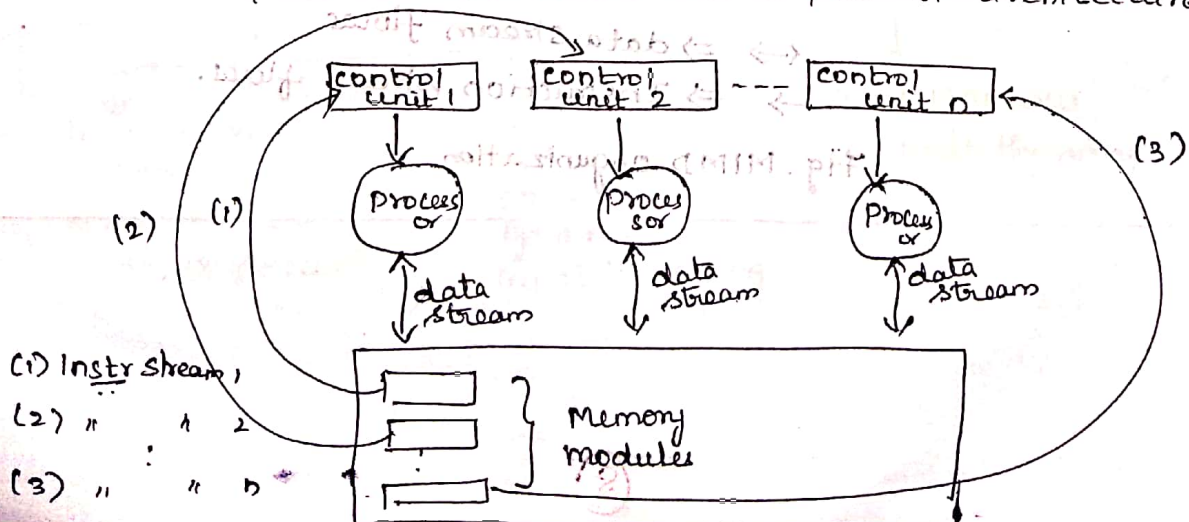 control unit 1
control unit 2
---
control unit n
(3)
(2)
(1)
Process or
Proces sor
Process or
data stream
data stream
data stream
(1) Instr stream 1
(2) " " 2
:
(3) " " n
Memory modules